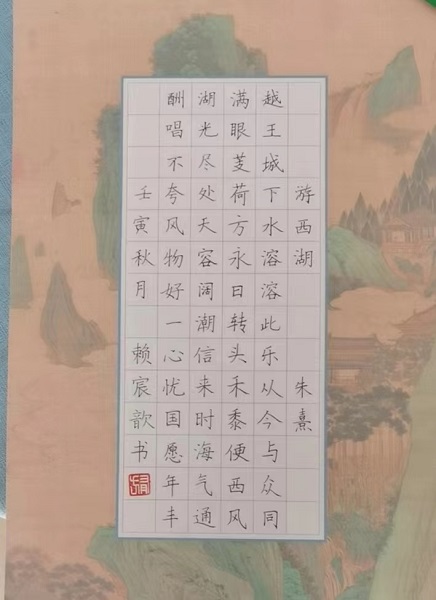 游西湖 朱熹
越王城下水溶溶此乐从今与众同
满眼芰荷方永日转头禾黍便西风
湖光尽处天容阔潮信来时海气通
酬唱不夸风物好一心忧国愿年丰
壬寅秋月 赖宸歆书